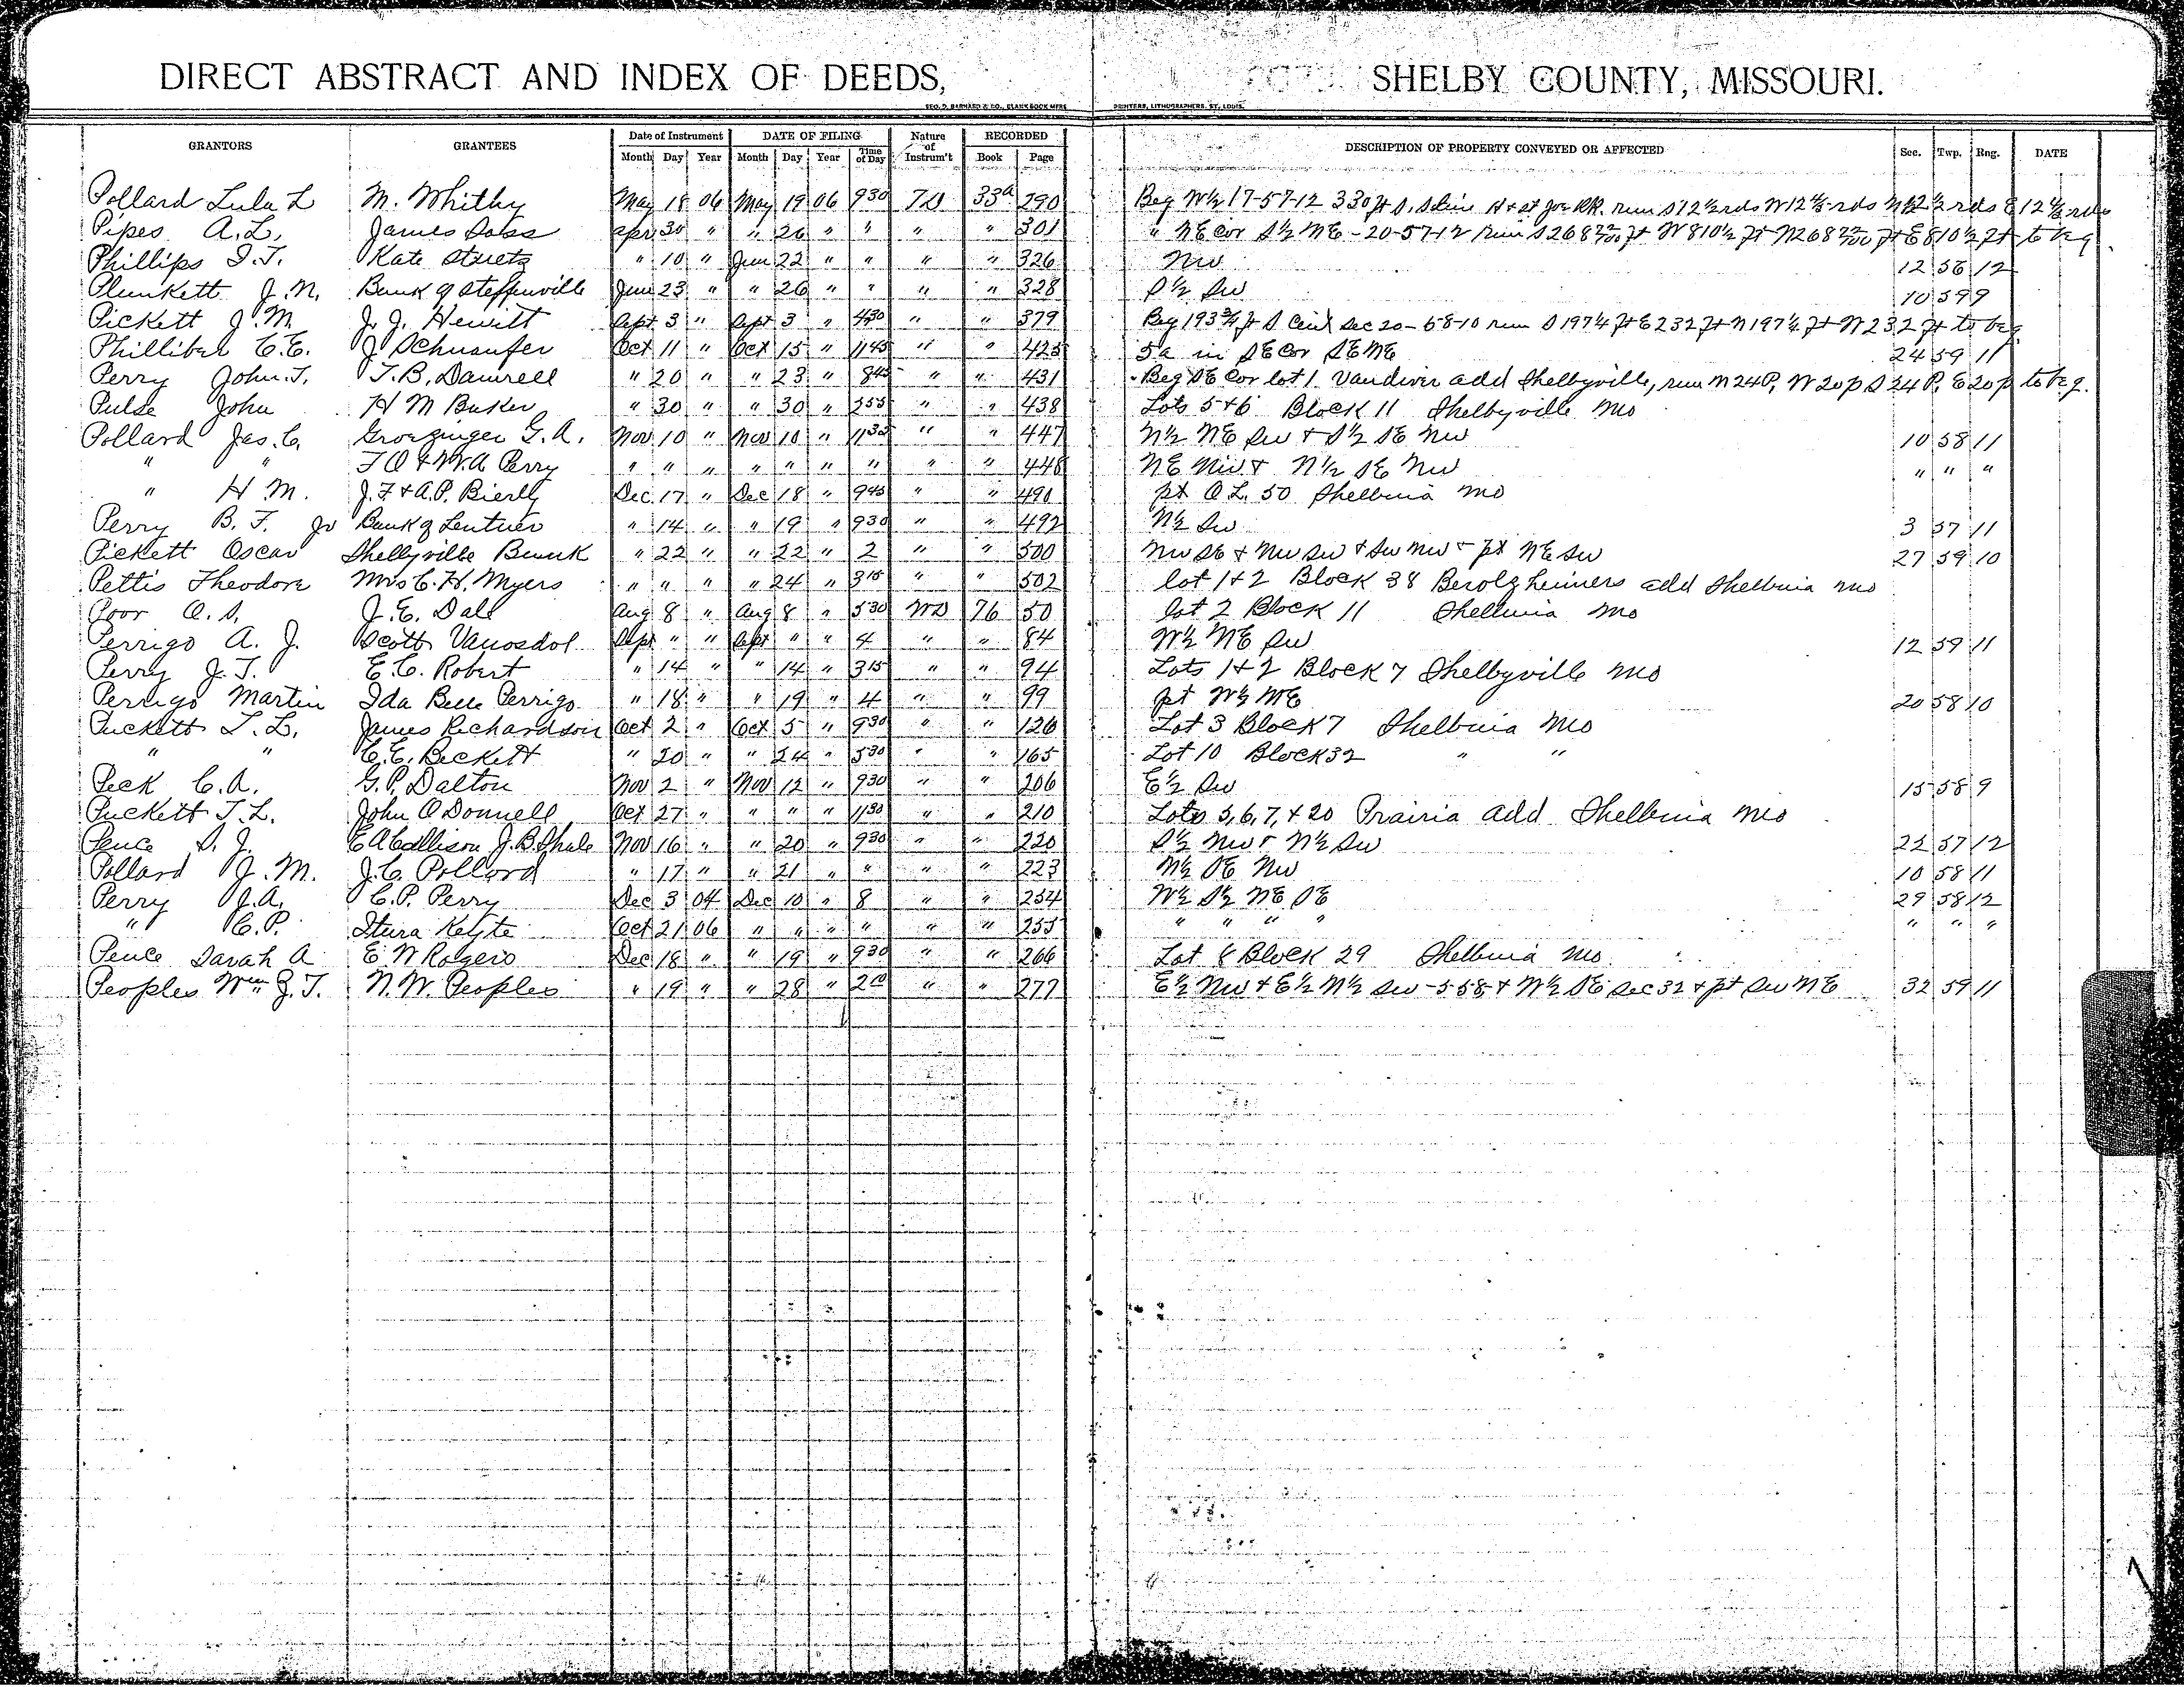 DIRECT ABSTRACT AND INDEX OF DEEDS, SHELBY COUNTY, MISSOURI.
GEO. D. BARNARD & CO., BLANK BOOK MFRS PRINTERS, LITHOGRAPHERS, ST. LOUIS.
GRANTORS GRANTEES Date of Instrument DATE OF FILING Nature of Instrum't RECORDED DESCRIPTION OF PROPERTY CONVEYED OR AFFECTED Sec. Twp. Rng. DATE
Month Day Year Month Day Year Time of Day Book Page
Pollard Lula L M. Whitby May 18 06 May 19 06 930 TD 33a 290 Beg W½ 17-57-12 330 ft S. S line H & St Joe RR. run S 12½ rds W 12⅘ rds N 12½ rds E 12⅘ rds
Pipes A.L. James Dobs Apr 30 " " 26 " " " " 301 " NE Cor S½ NE - 20-57-12 run S 268 ft W 810½ ft N 268 ft E 810½ ft to beg.
Phillips I.T. Kate " 10 " Jun 22 " " " " 326 NW 12 56 12
Plunkett J.N. Bank of Steffenville Jun 23 " " 26 " " " " 328 S½ SW 10 59 9
Pickett J.M. J.J. Hewitt Sept 3 " Sept 3 " 430 " " 379 Beg 193¾ ft S Cent Sec 20-58-10 run S 197¼ ft E 232 ft N 197¼ ft W 232 ft to beg.
Philliber C.E. J Schnaufer Oct 11 " Oct 15 " 1145 " " 425 5a in SE Cor SE NE 24 59 11
Perry John T. T.B. Damrell " 20 " " 23 " 845 " " 431 Beg SE Cor lot 1 Vandiver add Shelbyville, run N 24 P, W 20 p S 24 P, E 20 p to beg.
Pulse John H M Baker " 30 " " 30 " 255 " " 438 Lots 5+6 Block 11 Shelbyville Mo
Pollard Jas. C. Groezinger G.A. Nov 10 " Nov 10 " 1130 " " 447 N½ NE SW + S½ SE NW 10 58 11
" " T O & W.A Perry " " " " " " " " " 448 NE NW + N½ SE NW " " "
" H.M. J.F + A.P. Bierly Dec 17 " Dec 18 " 945 " " 490 pt O.L. 50 Shelbina Mo
Perry B.F. Jr Bank of Lentner " 14 " " 19 " 930 " " 492 N½ SW 3 57 11
Pickett Oscar Shelbyville Bank " 22 " " 22 " 2 " " 500 NW SE + NW SW + SW NW + pt NE SW 27 59 10
Pettis Theodore Mrs C.H. Myers " " " " 24 " 315 " " 502 lot 1+2 Block 38 Berolzheimers add Shelbina Mo
Poor O.S. J.E. Dale Aug 8 " Aug 8 " 530 WD 76 50 lot 2 Block 11 Shelbina Mo
Perrigo A. J. Scott Vanosdol Sept " " Sept " " 4 " " 84 W½ NE SW 12 59 11
Perry J.T. E.C. Robert " 14 " " 14 " 315 " " 94 Lots 1+2 Block 7 Shelbyville Mo
Perrigo Martin Ida Belle Perrigo " 18 " " 19 " 4 " " 99 pt W½ NE 20 58 10
Puckett T.L. James Richardson Oct 2 " Oct 5 " 930 " " 126 Lot 3 Block 7 Shelbina Mo
" " C.E. Beckett " 20 " " 24 " 530 " " 165 Lot 10 Block 32 " "
Peck C.A. G.P. Dalton Nov 2 " Nov 12 " 930 " " 206 E½ SW 15 58 9
Puckett T.L. John O Donnell Oct 27 " " " " 1130 " " 210 Lots 5, 6, 7, + 20 Prairia add Shelbina Mo
Pence S.J. E A Callison J.B. Shale Nov 16 " " 20 " 930 " " 220 S½ NW + N½ SW 22 57 12
Pollard J.M. J.C. Pollard " 17 " " 21 " " " " 223 N½ SE NW 10 58 11
Perry J.A. C.P. Perry Dec 3 04 Dec 10 " 8 " " 254 W½ S½ NE SE 29 58 12
" C.P. Stura Kelyte Oct 21 06 " " " " " " 255 " " " " " " "
Pence Sarah A E.W Rogers Dec 18 " " 19 " 930 " " 266 Lot 8 Block 29 Shelbina Mo.
Peoples Wm G.T. N.W. Peoples " 19 " " 28 " 200 " " 277 E½ NW + E½ N½ SW -5-58 + W½ SE Sec 32 + pt SW NE 32 59 11